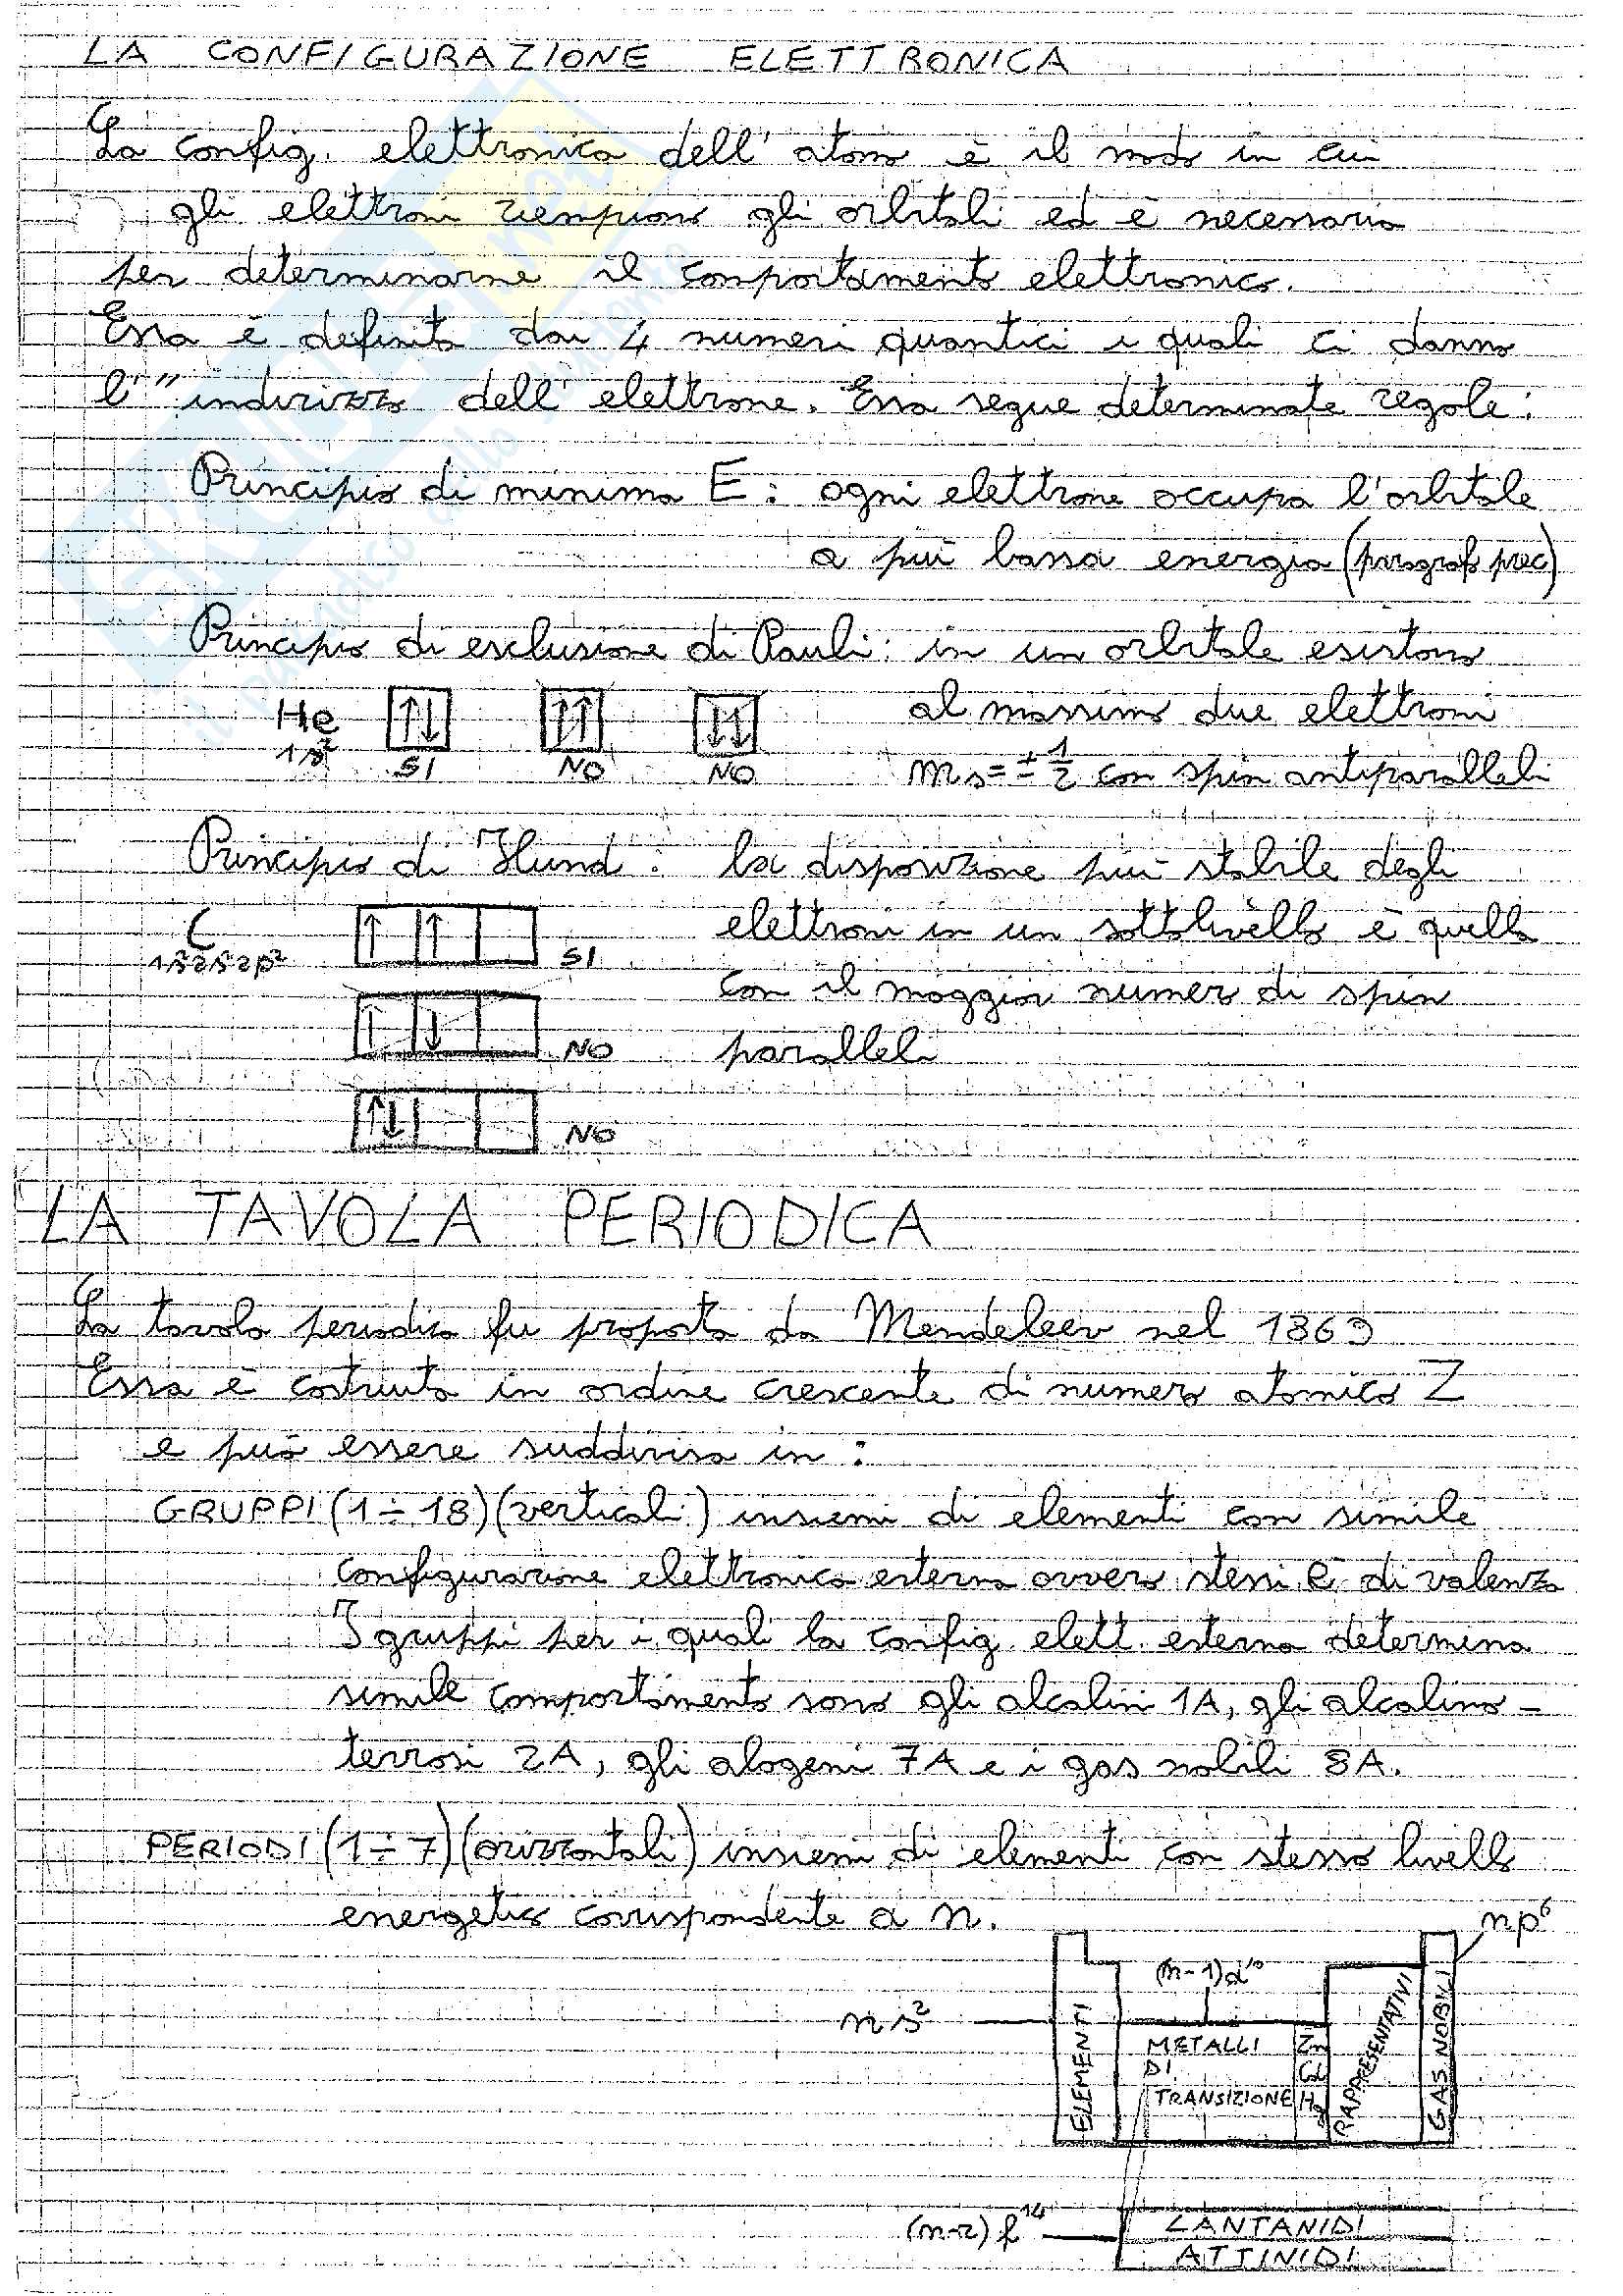 LA CONFIGURAZIONE ELETTRONICA
La config. elettronica dell'atomo è il modo in cui
gli elettroni riempiono gli orbitali ed è necessaria
per determinarne il comportamento elettronico.
Essa è definita dai 4 numeri quantici i quali ci danno
l'"indirizzo dell'elettrone. Essa segue determinate regole:
Principio di minima E: ogni elettrone occupa l'orbitale
a più bassa energia (paragrafo prec)
Principio di esclusione di Pauli: in un orbitale esistono
al massimo due elettroni
He ↑↓ ↑↑ ↓↓
1s² SI NO NO
ms = ± 1/2 con spin antiparalleli
Principio di Hund: la disposizione più stabile degli
elettroni in un sottolivello è quella
con il maggior numero di spin
paralleli
C ↑ ↑ SI
1s²2s²2p²
↑ ↓ NO
↑↓ NO
LA TAVOLA PERIODICA
La tavola periodica fu proposta da Mendeleev nel 1869
Essa è costruita in ordine crescente di numero atomico Z
e può essere suddivisa in:
GRUPPI (1÷18) (verticali) insiemi di elementi con simile
configurazione elettronica esterna ovvero stessi e⁻ di valenza
I gruppi per i quali la config. elett. esterna determina
simile comportamento sono gli alcalini 1A, gli alcalino-
terrosi 2A, gli alogeni 7A e i gas nobili 8A.
PERIODI (1÷7) (orizzontali) insiemi di elementi con stesso livello
energetico corrispondente a n.
np⁶
(n-1)d¹⁰
ns²
ELEMENTI
METALLI
DI
TRANSIZIONE
Zn
Cd
Hg
RAPPRESENTATIVI
GAS NOBILI
(n-2)f¹⁴
LANTANIDI
ATTINIDI